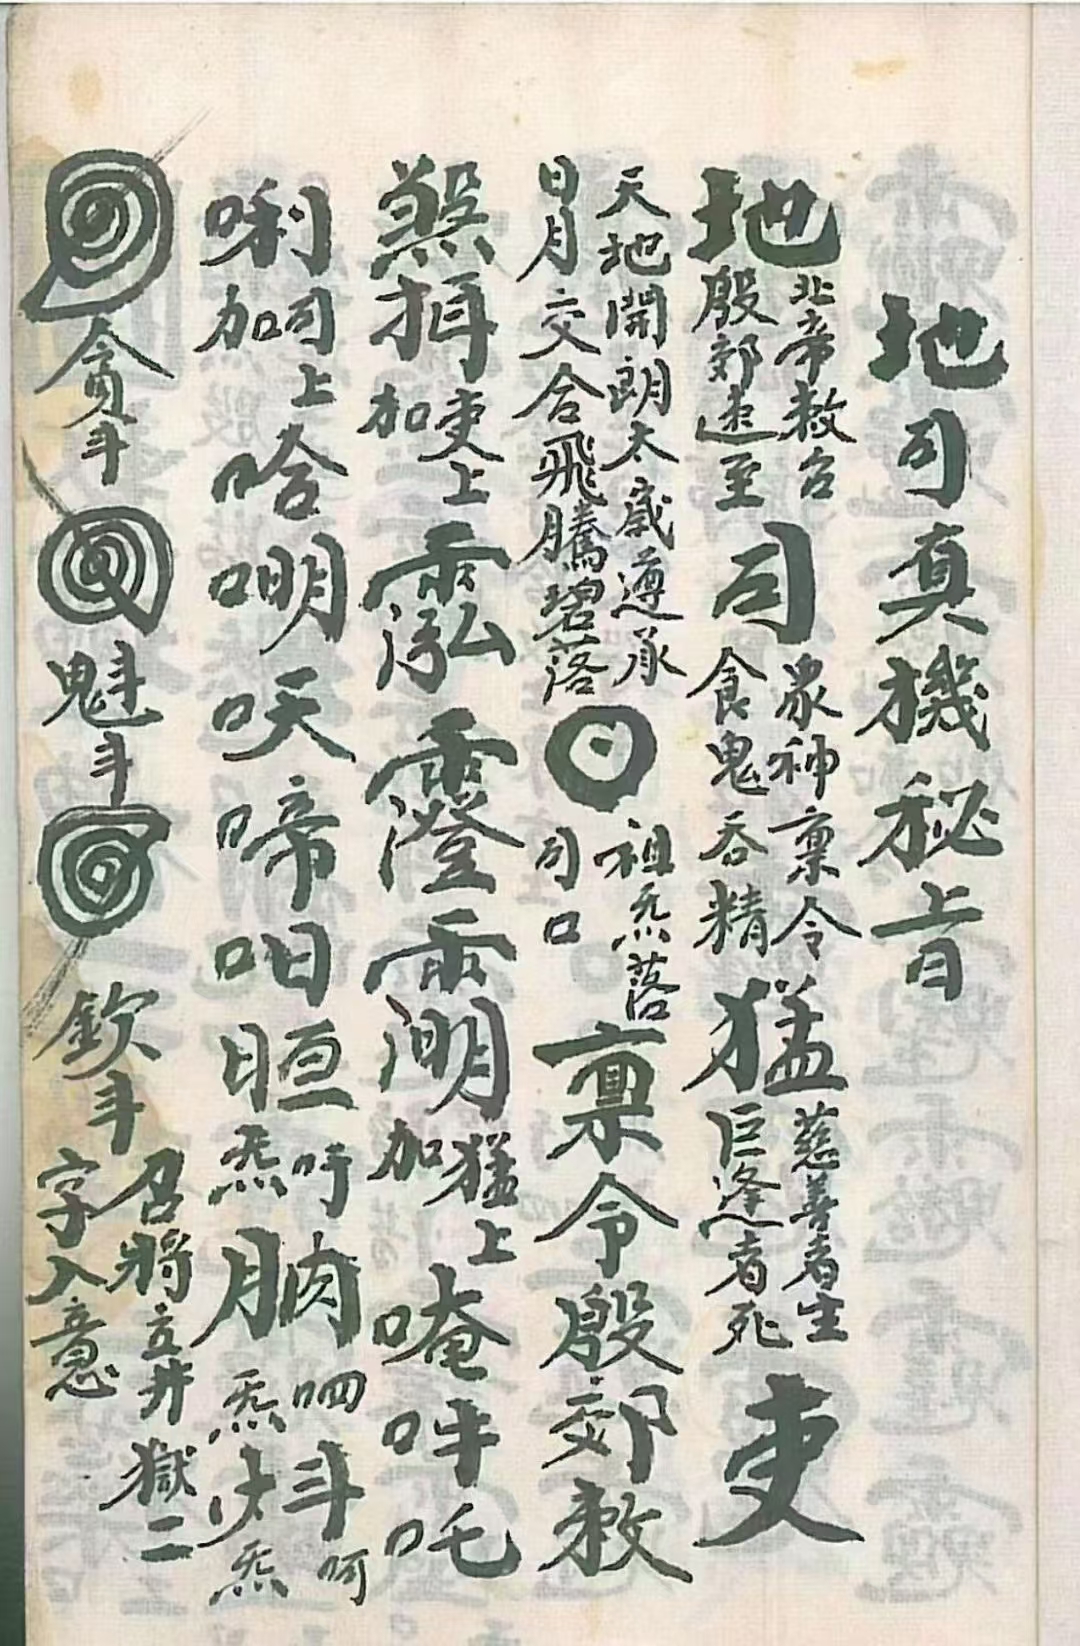 地司真機秘旨
地 北帝敕召 殷郊速至 司 眾神稟令 食鬼吞精 猛 慈善者生 巨逢者死 吏
天地開朗太歲遵承 日月交合飛騰碧落 祖炁落 司口 稟令殷郊敕
煞 加吏上 加猛上 唵吽吒
唎 加司上 哈 啼 吁炁 呬炁 斗 呵炁
貪斗 魁斗 欽斗 召將立井獄二 字入意